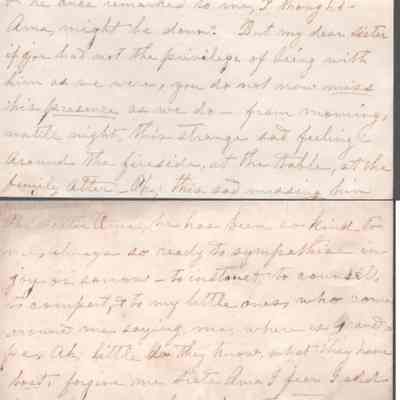 he once remarked to me, I thought
Anna might be down? But my dear sister
if you had not the privilege of being with
him as we were, you do not now miss
his presence as we do – from morning,
untill night, this strange sad feeling
around the fireside, at the table, at the
family alter – Oh, this sad missing him
sister Anna, he has been so kind to
always so ready to sympathise in
joy or sorrow – to instruct, to counsel,
comfort, & to my little ones, who come
around me saying, ma, where is Grand
pa, Ah, little do they know, what they have
lost, forgive me Sister Anna I fear I